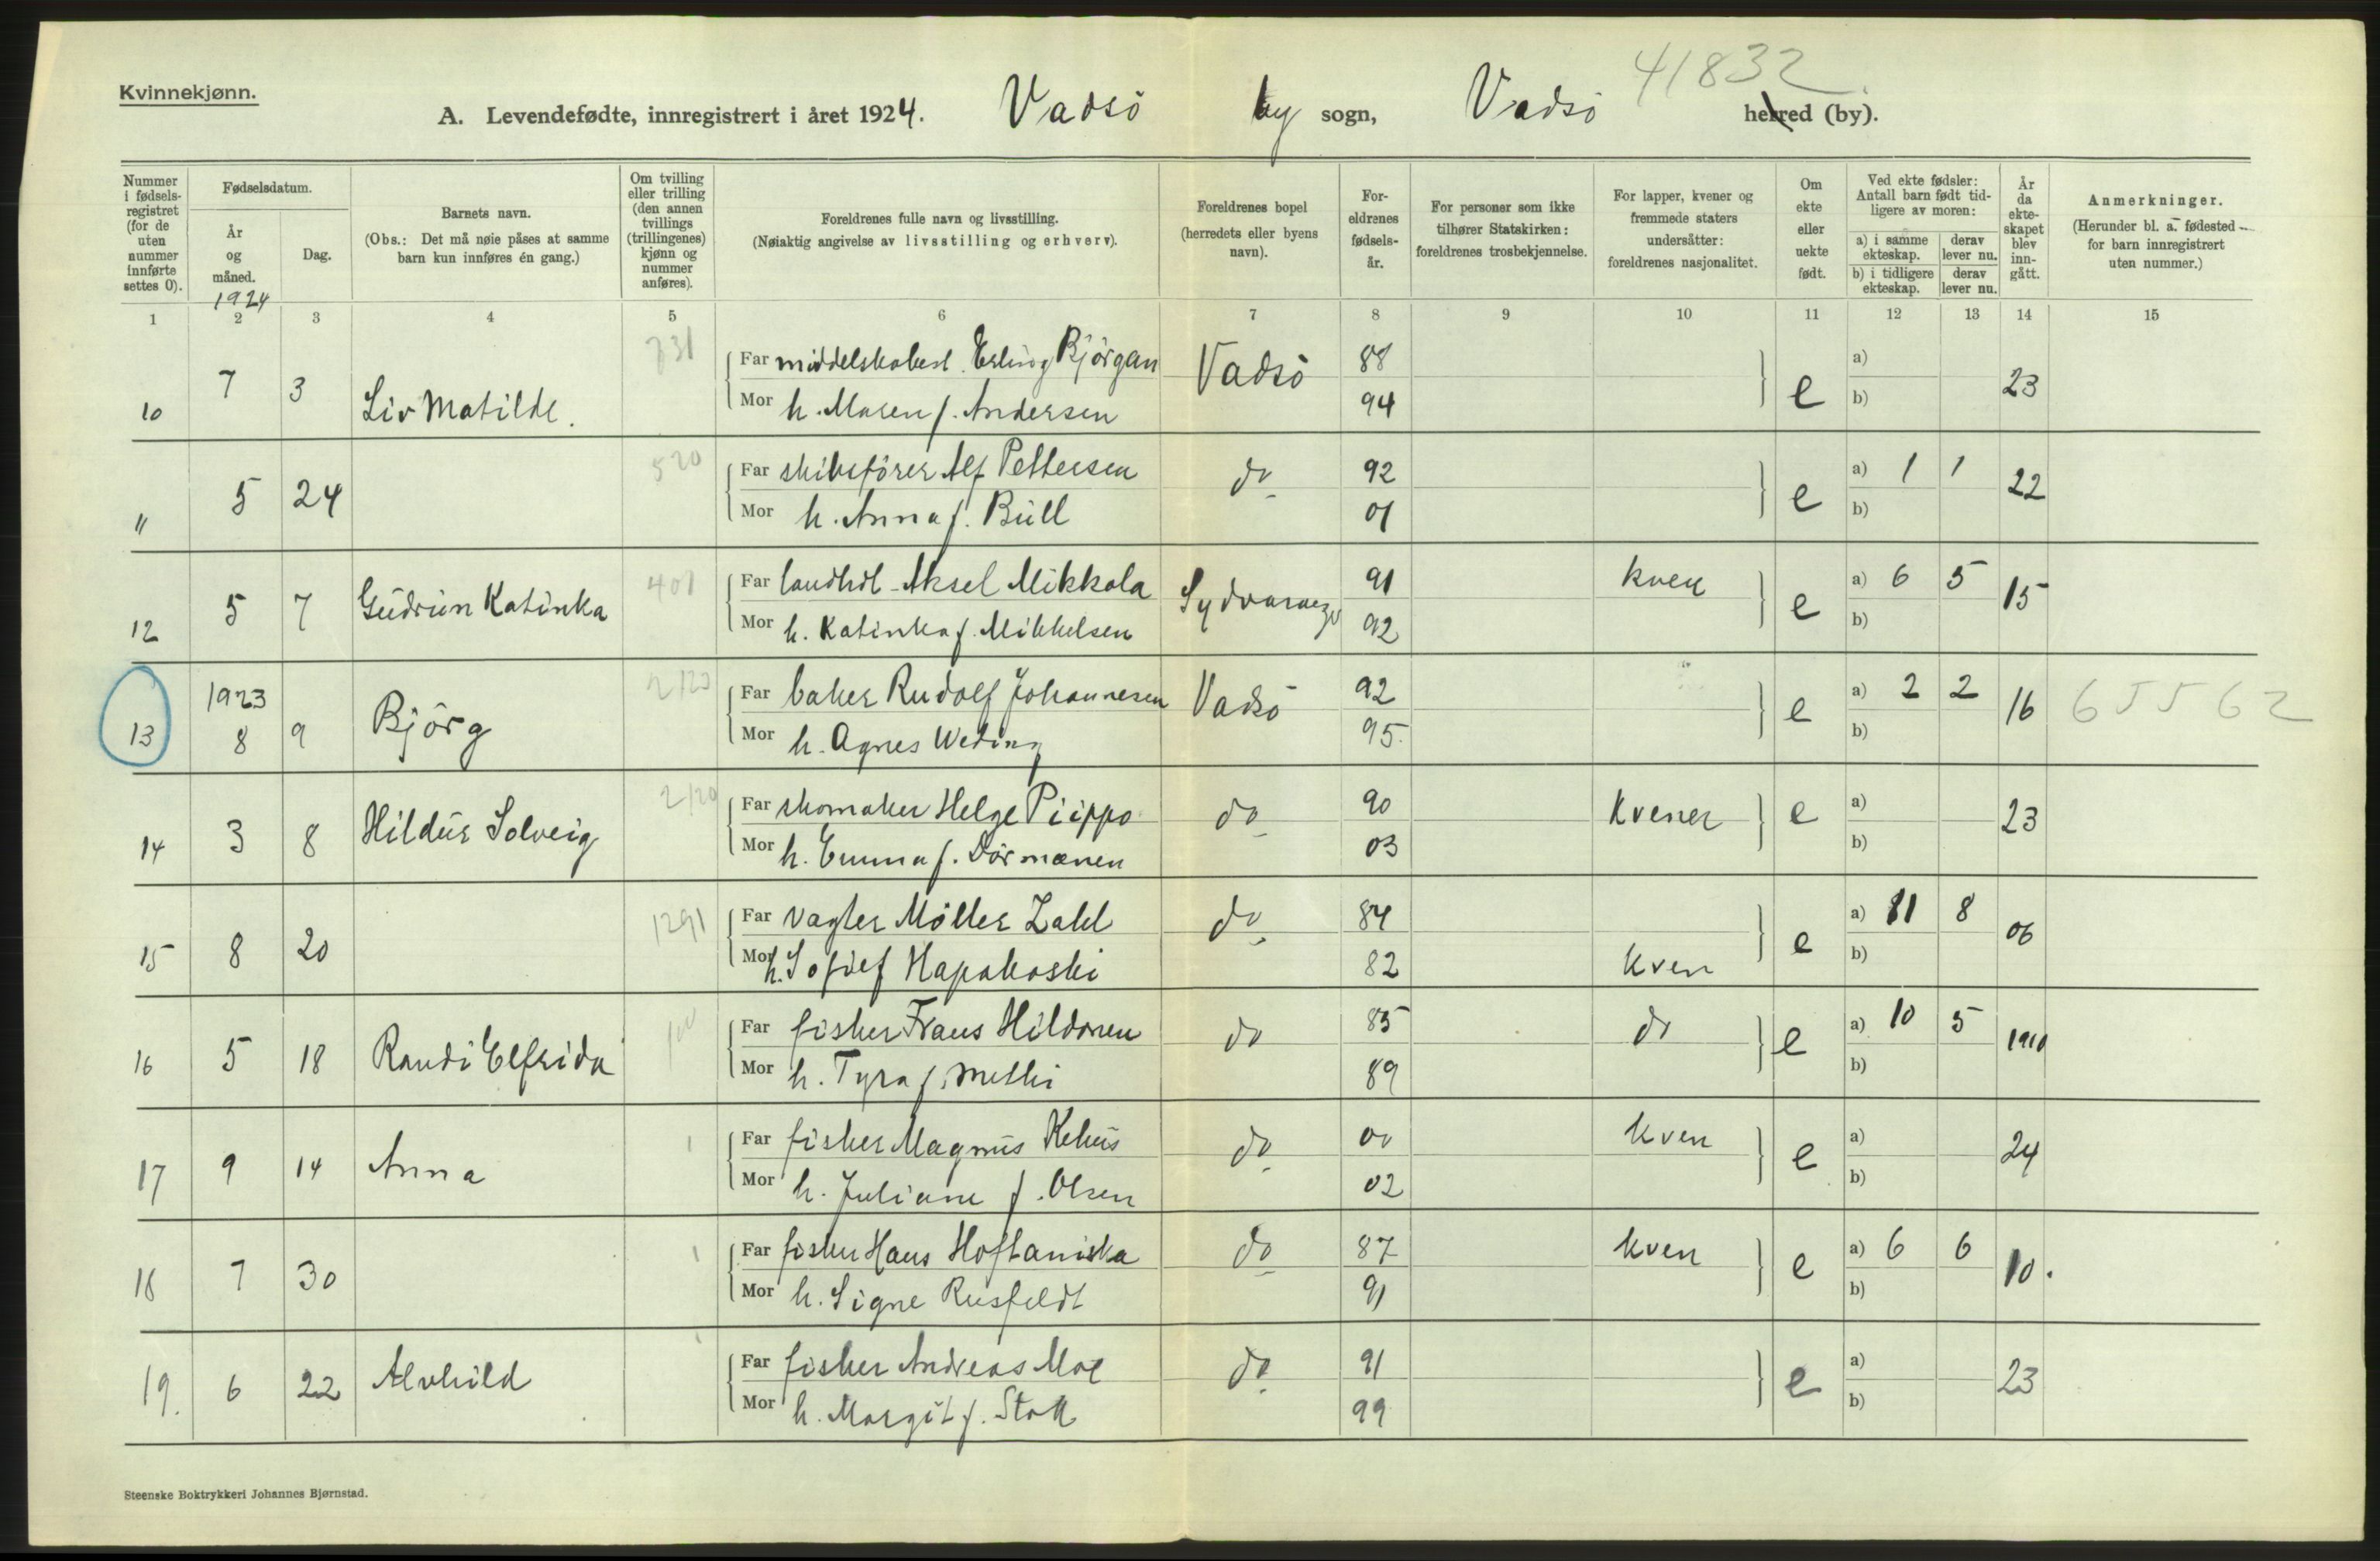 Kvinnekjønn.
41832
A. Levendefødte, innregistrert i året 1924. Vadsö by sogn, Vadsö herred (by).
Nummer i fødselsregistret (for de uten nummer innførte settes 0).
Fødselsdatum.
År og måned.
1924
Dag.
Barnets navn.
(Obs.: Det må nøie påses at samme barn kun innføres én gang.)
Om tvilling eller trilling (den annen tvillings (trillingenes) kjønn og nummer anføres).
Foreldrenes fulle navn og livsstilling.
(Nøiaktig angivelse av livsstilling og erhverv).
Foreldrenes bopel (herredets eller byens navn).
Foreldrenes fødselsår.
For personer som ikke tilhører Statskirken: foreldrenes trosbekjennelse.
For lapper, kvener og fremmede staters undersåtter: foreldrenes nasjonalitet.
Om ekte eller uekte født.
Ved ekte fødsler: Antall barn født tidligere av moren:
a) i samme ekteskap. derav lever nu.
b) i tidligere ekteskap. derav lever nu.
År da ekteskapet blev inngått.
Anmerkninger.
(Herunder bl. a. fødested for barn innregistrert uten nummer.)
1 2 3 4 5 6 7 8 9 10 11 12 13 14 15
10 7 3 Liv Matilde. 731 Far middelskolebest. Erling Björgan Vadsö 88 e a) 23
Mor h. Maren f. Andersen 94 b)
11 5 24 520 Far skibsförer Alf Pettersen do 92 e a) 1 1 22
Mor h. Anna f. Bull 01 b)
12 5 7 Gudrun Katinka 401 Far landhdl. Aksel Mikkola Sydvaranger 91 kven e a) 6 5 15
Mor h. Katinka f. Mikkelsen 92 b)
13 1923 8 9 Björg 2120 Far baker Rudolf Johannesen Vadsö 92 e a) 2 2 16 65562
Mor h. Agnes Weding 95. b)
14 3 8 Hildur Solveig 2120 Far skomaker Helge Piippo do 90 Kvener e a) 23
Mor h. Emma f. Dörmænen 03 b)
15 8 20 1291 Far vagter Möller Zahl do 84 e a) 11 8 06
Mor h. Sofie f Hapakoski 82 kven b)
16 5 18 Randi Elfrida 100 Far fisker Frans Hildonen do 85 do e a) 10 5 1910
Mor h. Tyra f. Methi 89 b)
17 9 14 Anna 1 Far fisker Magnus Kehus do 00 kven e a) 24
Mor h. Juliane f. Olsen 02 b)
18 7 30 1 Far fisker Hans Hoftaniska do 87 kven e a) 6 6 10.
Mor h. Signe Rusfeldt 91 b)
19. 6 22 Alvhild 1 Far fisker Andreas Moe do 91 e a) 23
Mor h. Margit f. Stok 99 b)
Steenske Boktrykkeri Johannes Bjørnstad.